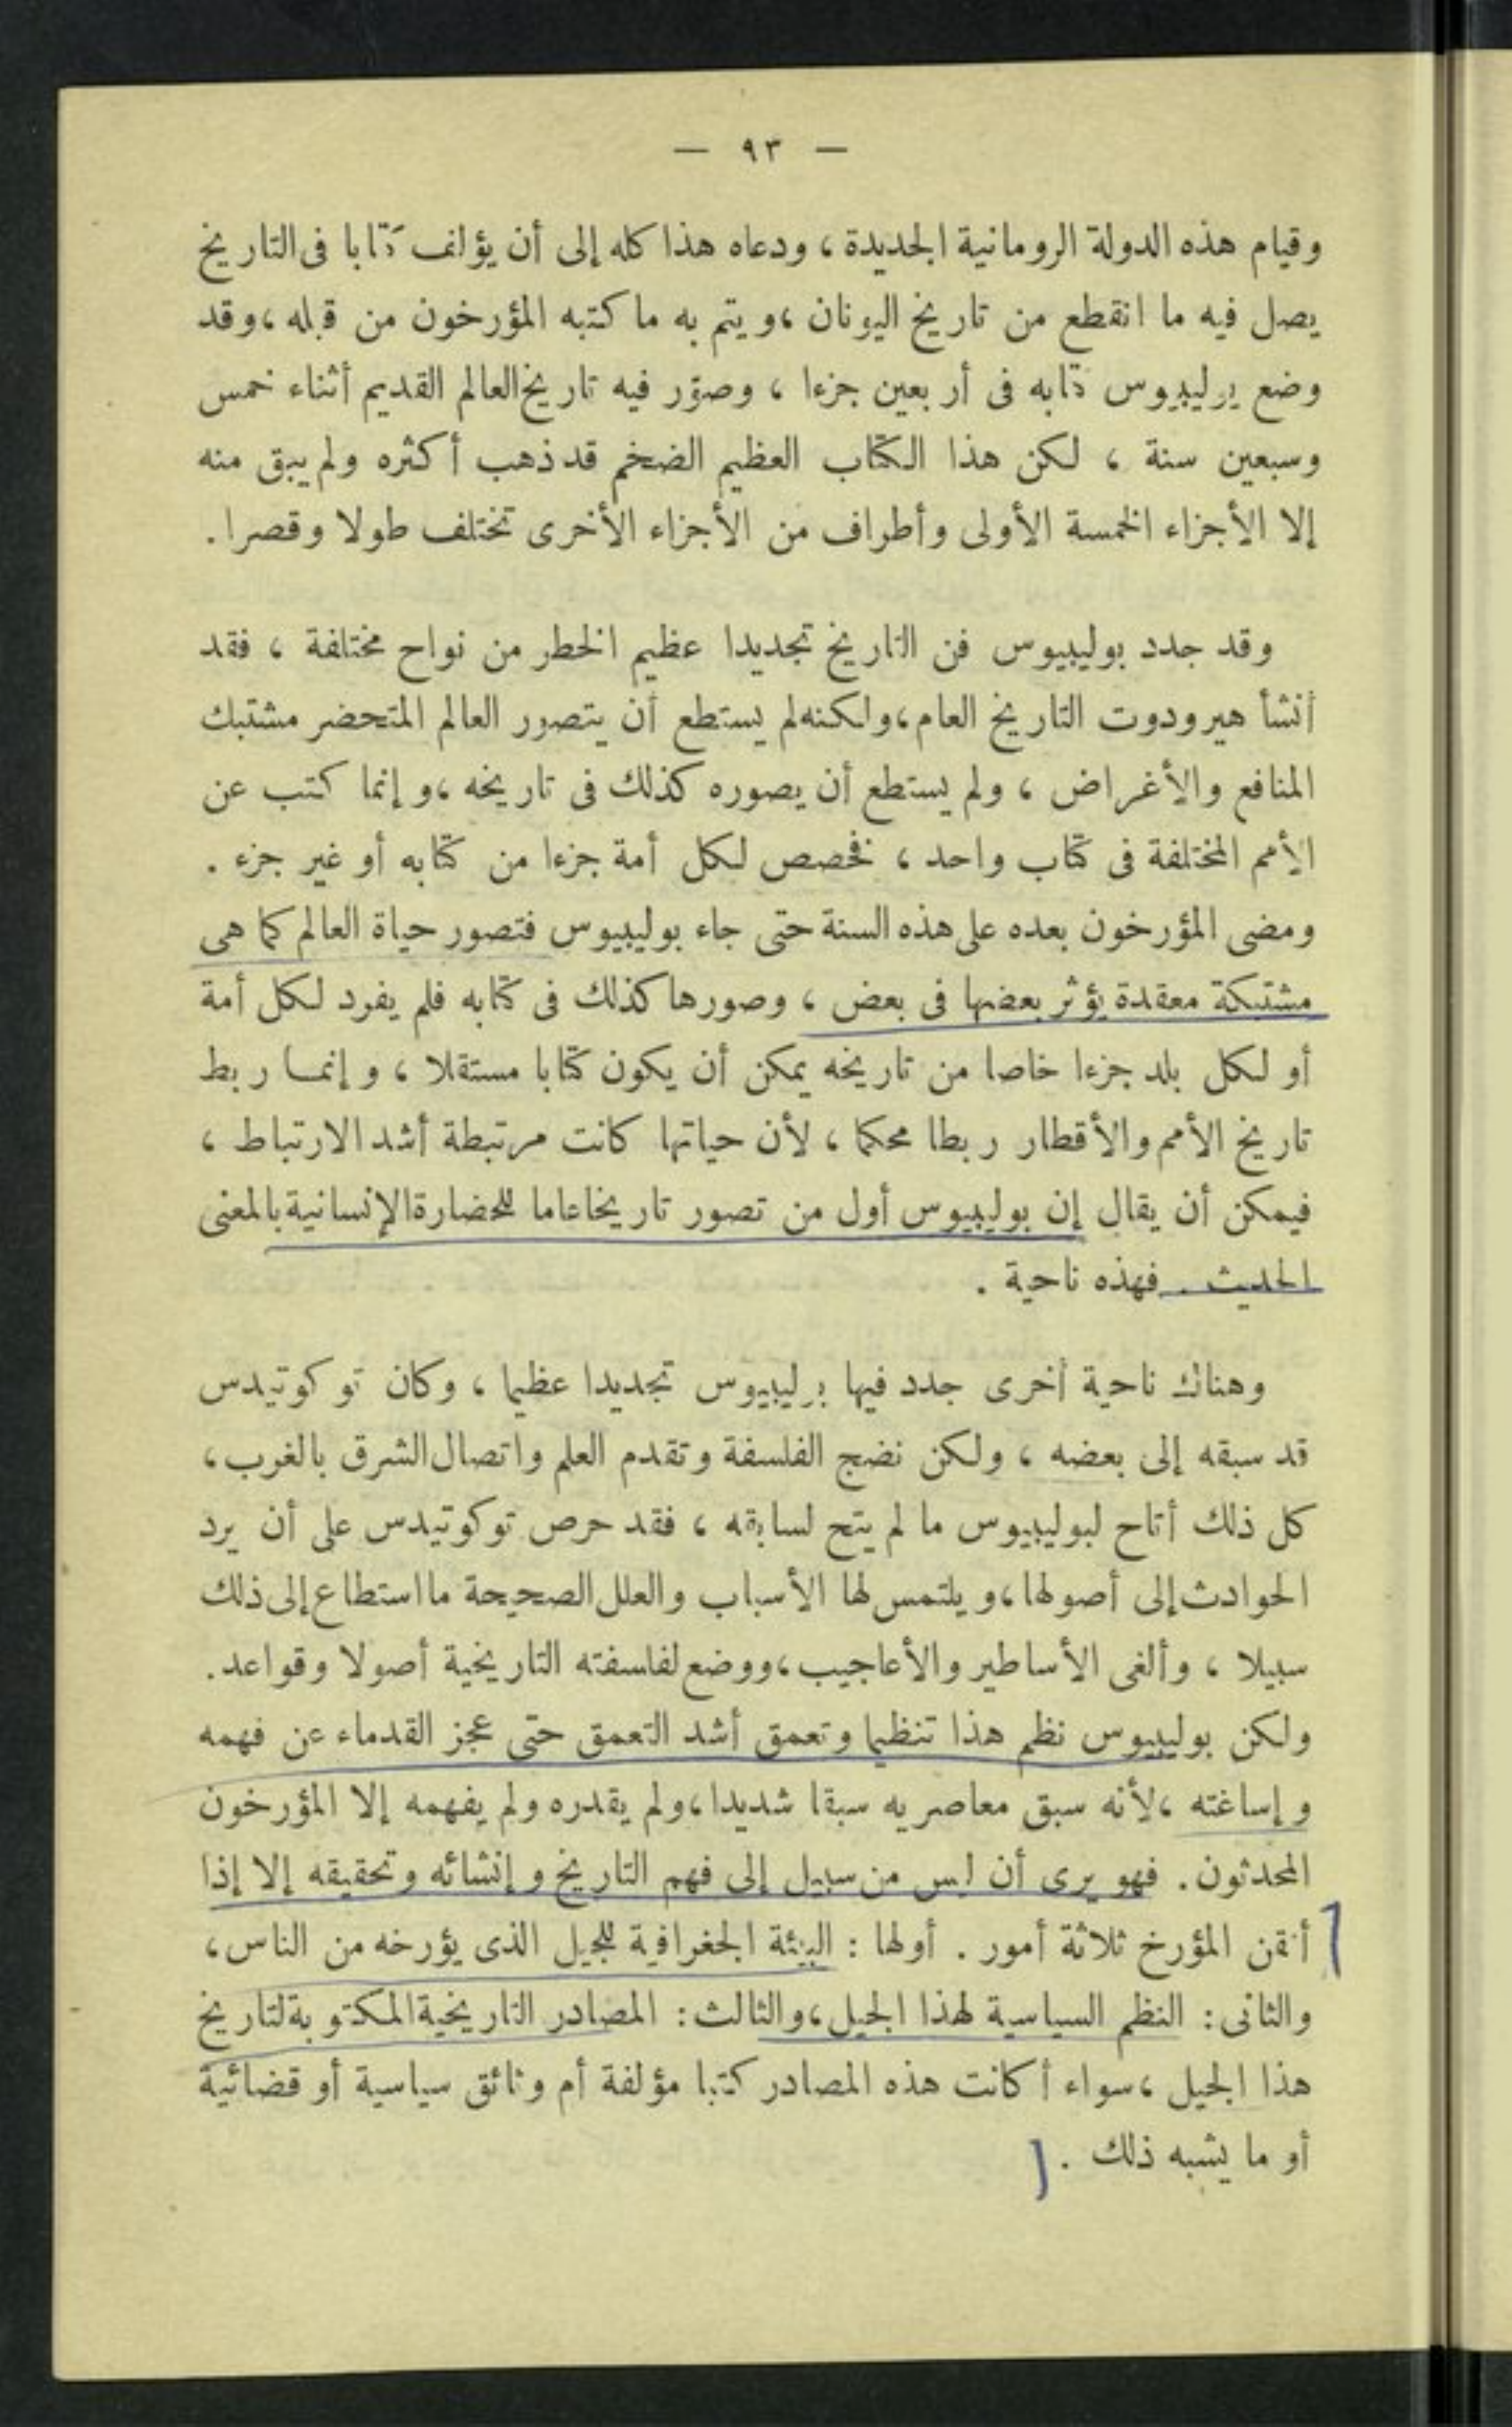 — ٩٣ —
وقيام هذه الدولة الرومانية الجديدة ، ودعاه هذا كله إلى أن يؤلف كتابا فى التاريخ
يصل فيه ما انقطع من تاريخ اليونان ، ويتم به ما كتبه المؤرخون من قبله ، وقد
وضع بوليبيوس كتابه فى أربعين جزءا ، وصوّر فيه تاريخ العالم القديم أثناء خمس
وسبعين سنة ، لكن هذا الكتاب العظيم الضخم قد ذهب أكثره ولم يبق منه
إلا الأجزاء الخمسة الأولى وأطراف من الأجزاء الأخرى تختلف طولا وقصرا .
وقد جدد بوليبيوس فن التاريخ تجديدا عظيم الخطر من نواح مختلفة ، فقد
أنشأ هيرودوت التاريخ العام ، ولكنه لم يستطع أن يتصور العالم المتحضر مشتبك
المنافع والأغراض ، ولم يستطع أن يصوره كذلك فى تاريخه ، وإنما كتب عن
الأمم المختلفة فى كتاب واحد ، فخصص لكل أمة جزءا من كتابه أو غير جزء .
ومضى المؤرخون بعده على هذه السنة حتى جاء بوليبيوس فتصور حياة العالم كما هى
مشتبكة معقدة يؤثر بعضها فى بعض ، وصورها كذلك فى كتابه فلم يفرد لكل أمة
أو لكل بلد جزءا خاصا من تاريخه يمكن أن يكون كتابا مستقلا ، وإنما ربط
تاريخ الأمم والأقطار ربطا محكما ، لأن حياتها كانت مرتبطة أشد الارتباط ،
فيمكن أن يقال إن بوليبيوس أول من تصور تاريخا عاما للحضارة الإنسانية بالمعنى
الحديث . فهذه ناحية .
وهناك ناحية أخرى جدد فيها بوليبيوس تجديدا عظيما ، وكان توكوتيدس
قد سبقه إلى بعضه ، ولكن نضج الفلسفة وتقدم العلم واتصال الشرق بالغرب ،
كل ذلك أتاح لبوليبيوس ما لم يتح لسابقه ، فقد حرص توكوتيدس على أن يرد
الحوادث إلى أصولها ، ويلتمس لها الأسباب والعلل الصحيحة ما استطاع إلى ذلك
سبيلا ، وألغى الأساطير والأعاجيب ، ووضع لفلسفته التاريخية أصولا وقواعد .
ولكن بوليبيوس نظم هذا تنظيما وتعمق أشد التعمق حتى عجز القدماء عن فهمه
وإساغته ، لأنه سبق معاصريه سبقا شديدا ، ولم يقدره ولم يفهمه إلا المؤرخون
المحدثون . فهو يرى أن ليس من سبيل إلى فهم التاريخ وإنشائه وتحقيقه إلا إذا
أتقن المؤرخ ثلاثة أمور . أولها : البيئة الجغرافية للجيل الذى يؤرخه من الناس ،
والثانى : النظم السياسية لهذا الجيل ، والثالث : المصادر التاريخية المكتوبة لتاريخ
هذا الجيل ، سواء أكانت هذه المصادر كتبا مؤلفة أم وثائق سياسية أو قضائية
أو ما يشبه ذلك .